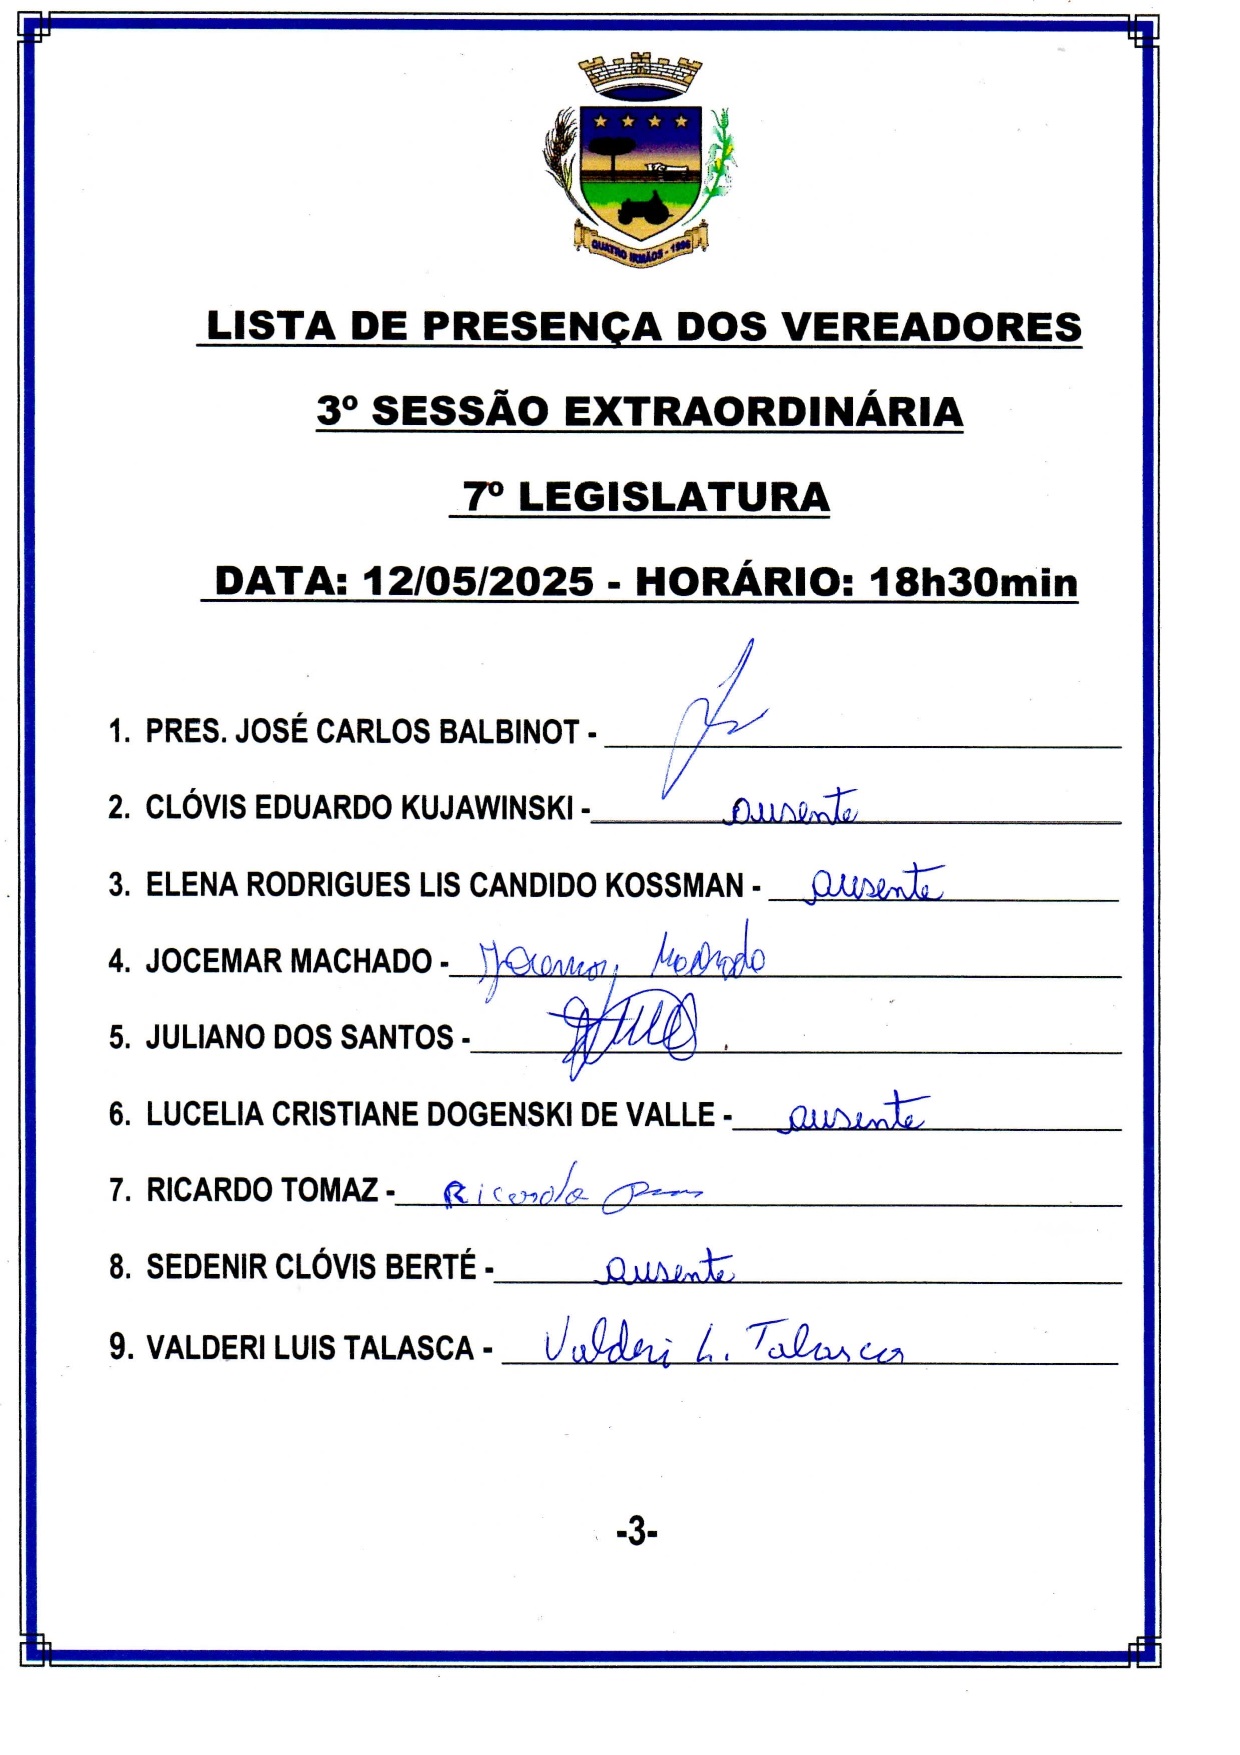 QUATRO IRMÃOS - 1996
LISTA DE PRESENÇA DOS VEREADORES
3º SESSÃO EXTRAORDINÁRIA
7º LEGISLATURA
DATA: 12/05/2025 - HORÁRIO: 18h30min
1. PRES. JOSÉ CARLOS BALBINOT -
2. CLÓVIS EDUARDO KUJAWINSKI - ausente
3. ELENA RODRIGUES LIS CANDIDO KOSSMAN - ausente
4. JOCEMAR MACHADO - Jocemar Machado
5. JULIANO DOS SANTOS -
6. LUCELIA CRISTIANE DOGENSKI DE VALLE - ausente
7. RICARDO TOMAZ - Ricardo
8. SEDENIR CLÓVIS BERTÉ - ausente
9. VALDERI LUIS TALASCA - Valderi L. Talasca
-3-